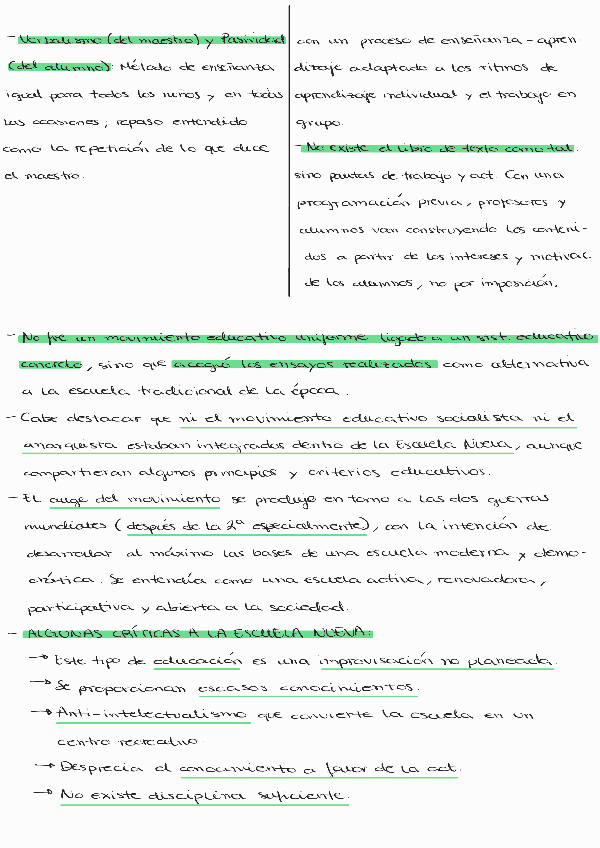 - Verbalismo (del maestro) y Pasividad
(del alumno): Método de enseñanza
igual para todos los niños y en todas
las ocasiones; repaso entendido
como la repetición de lo que dice
el maestro.
con un proceso de enseñanza - apren-
dizaje adaptado a los ritmos de
aprendizaje individual y el trabajo en
grupo.
- No existe el libro de texto como tal.
sino pautas de trabajo y act. Con una
programación previa, profesores y
alumnos van construyendo los conteni-
dos a partir de los intereses y motivac.
de los alumnos, no por imposición.
- No fue un movimiento educativo uniforme ligado a un sist. educativo
concreto, sino que acogió los ensayos realizados como alternativa
a la escuela tradicional de la época.
- Cabe destacar que ni el movimiento educativo socialista ni el
anarquista estaban integrados dentro de la Escuela Nueva, aunque
compartieran algunos principios y criterios educativos.
- El auge del movimiento se produje en torno a las dos guerras
mundiales (después de la 2ª especialmente), con la intención de
desarrollar al máximo las bases de una escuela moderna y demo-
crática. Se entendía como una escuela activa, renovadora,
participativa y abierta a la sociedad.
- ALGUNAS CRÍTICAS A LA ESCUELA NUEVA:
→ Este tipo de educación es una improvisación no planeada.
→ Se proporcionan escasos conocimientos.
→ Anti-intelectualismo que convierte la escuela en un
centro recreativo.
→ Desprecia el conocimiento a favor de la act.
→ No existe disciplina suficiente.